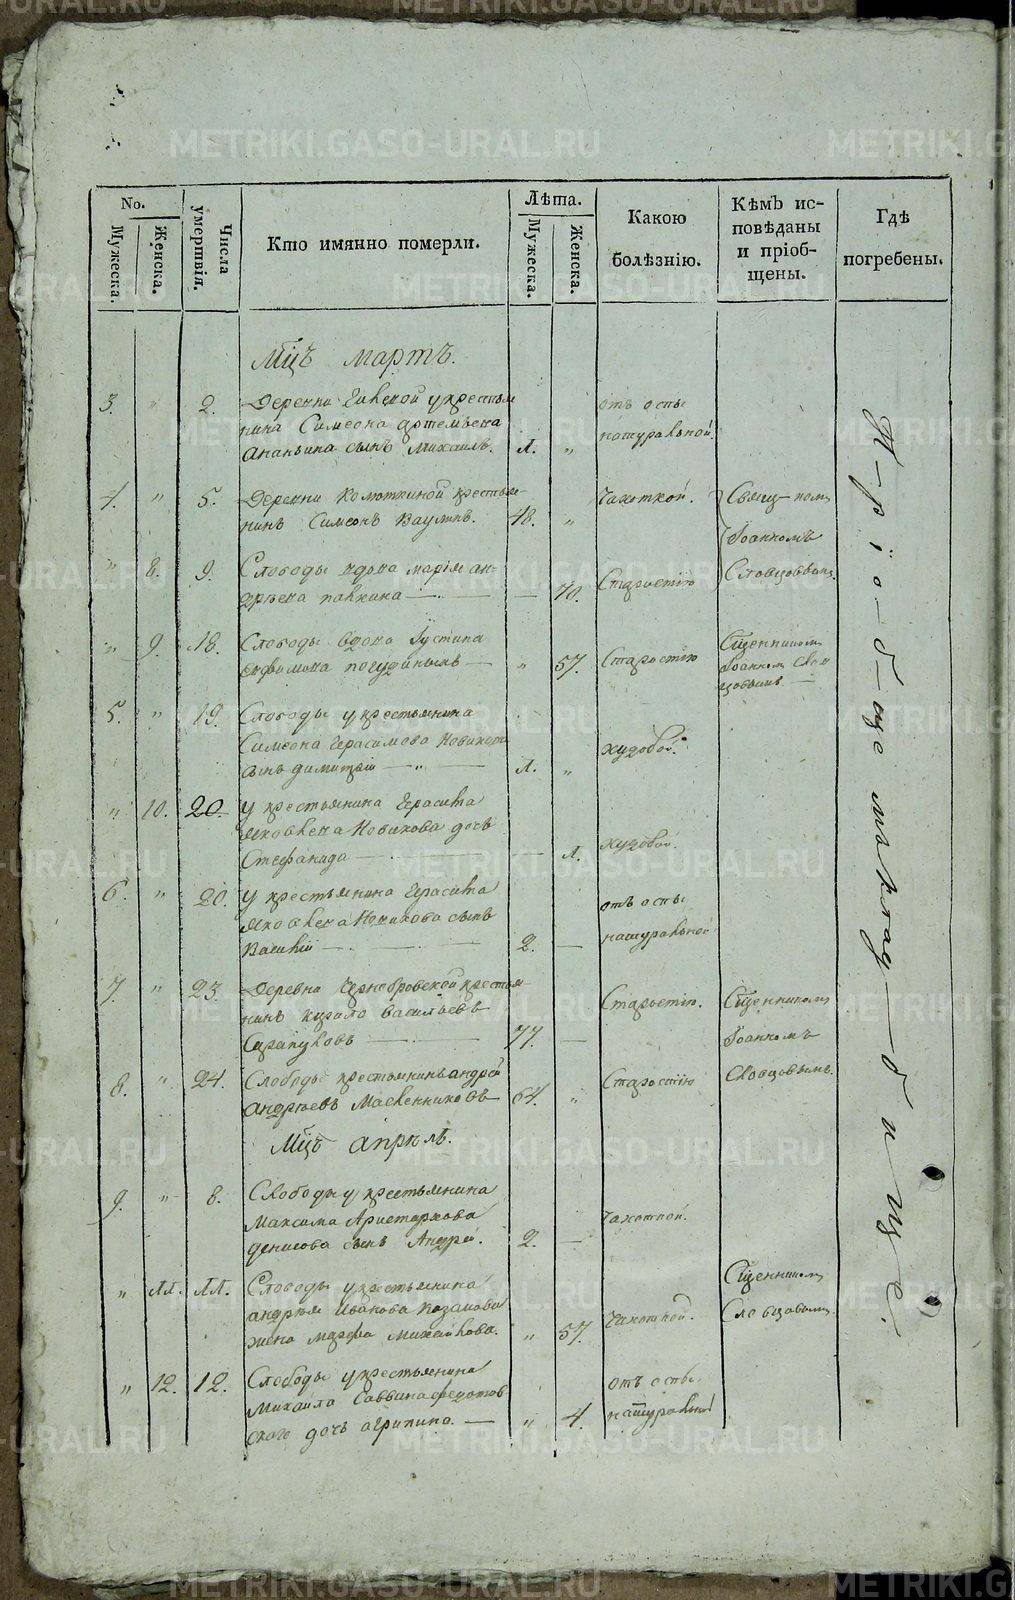 No.
Мужеска.
Женска.
Числа умертвія.
Кто имянно померли.
Лѣта.
Мужеска.
Женска.
Какою болѣзнію.
Кѣмъ ис-
повѣданы
и пріоб-
щены.
Гдѣ
погребены.
Мцъ мартъ.
3. " 2. Деревни у крестья
нина Симеона Артемьева
Ананьина сынъ Михаилъ. 1. "
отъ оспы
натуральной.
4. " 5. Деревни Колюткиной крестья-
нинъ Симеонъ Ваулинъ. 48. "
Чахоткой.
Свящ-ком
Іоанномъ
Словцовым
" 8. 9. Слободы вдова Марія Ан-
дрѣева Павкина — 70.
Старостію
" 9. 18. Слободы вдова Іустина
Ефимова Погудиныхъ — " 57.
Старостію
Сщенником
Іоанном Слов
цовымъ —
5. " 19. Слободы у крестьянина
Симеона Герасимова Новикова
сынъ Димитрій — " — 1. "
худобой.
" 10. 20. У крестьянина Герасима
Яковлева Новикова дочь
Стефанида — — 1.
худобой.
6. " 20. У крестьянина Герасима
Яковлева Новикова сынъ
Василій — 2. —
отъ оспы
натуральной
7. " 23. Деревни Чернобровской крестья
нинъ Кирило Васильевъ
Сарапуловъ — 77. —
Старостію.
Сщенником
Іоанномъ
Словцовымъ.
8. " 24. Слободы крестьянинъ Андрей
Андрѣевъ Масленниковъ 64. "
Старостію
Мцъ апрѣль.
9. " 8. Слободы у крестьянина
Максима Аристархова
Денисова сынъ Андрей. 2. —
Чахоткой.
" 11. 11. Слободы у крестьянина
Андрѣя Иванова Казакова
жена Марфа Михайлова. " 57.
Чахоткой.
Сщенником
Словцовым
" 12. 12. Слободы у крестьянина
Михаила Саввина Федотов
скаго дочь Агрипина. — " 4
отъ оспы
натуральной
На пріобще кладбище.
METRIKI.GASO-URAL.RU